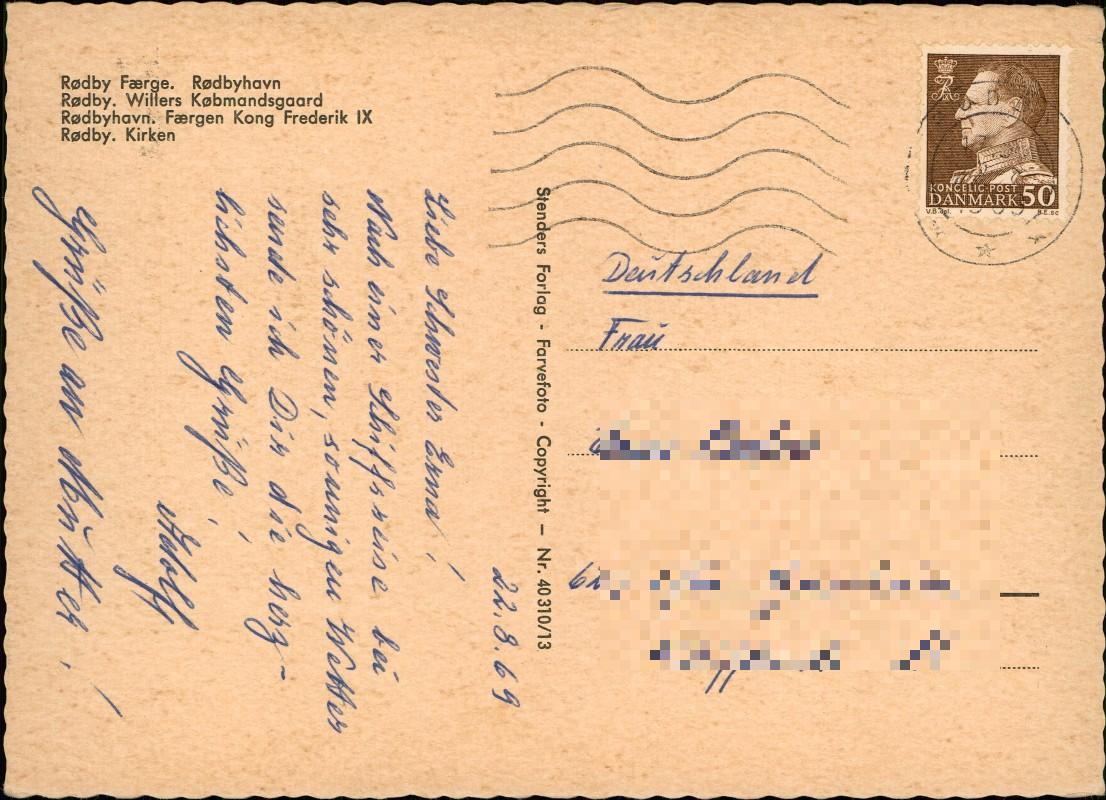 Rødby Færge. Rødbyhavn
Rødby. Willers Købmandsgaard
Rødbyhavn. Færgen Kong Frederik IX
Rødby. Kirken
KONGELIG·POST
DANMARK 50
V.B. del.
B.E. sc
Stenders Forlag - Farvefoto - Copyright – Nr. 40310/13
22.8.69
Liebe Schwester Erna!
Nach einer Schiffsreise bei
sehr schönem, sonnigen Wetter
sende ich Dir die herz-
lichsten Grüße!
Adolf
Grüße an Mutter!
Deutschland
Frau